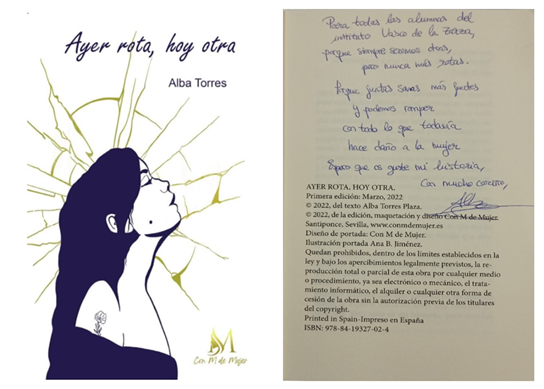 Ayer rota, hoy otra
Alba Torres
Con M de Mujer
Para todas las alumnas del
instituto Vasco de la Zarza,
porque siempre seremos otras,
pero nunca más rotas.
Porque juntas somos más fuertes
y podemos romper
con todo lo que todavía
hace daño a la mujer
Espero que os guste mi historia,
Con mucho cariño,
Alba
AYER ROTA, HOY OTRA.
Primera edición: Marzo, 2022
© 2022, del texto Alba Torres Plaza.
© 2022, de la edición, maquetación y diseño Con M de Mujer.
Santiponce, Sevilla, www.conmdemujer.es
Diseño de portada: Con M de Mujer.
Ilustración portada Ana B. Jiménez.
Quedan prohibidos, dentro de los límites establecidos en la
ley y bajo los apercibimientos legalmente previstos, la re-
producción total o parcial de esta obra por cualquier medio
o procedimiento, ya sea electrónico o mecánico, el trata-
miento informático, el alquiler o cualquier otra forma de
cesión de la obra sin la autorización previa de los titulares
del copyright.
Printed in Spain-Impreso en España
ISBN: 978-84-19327-02-4